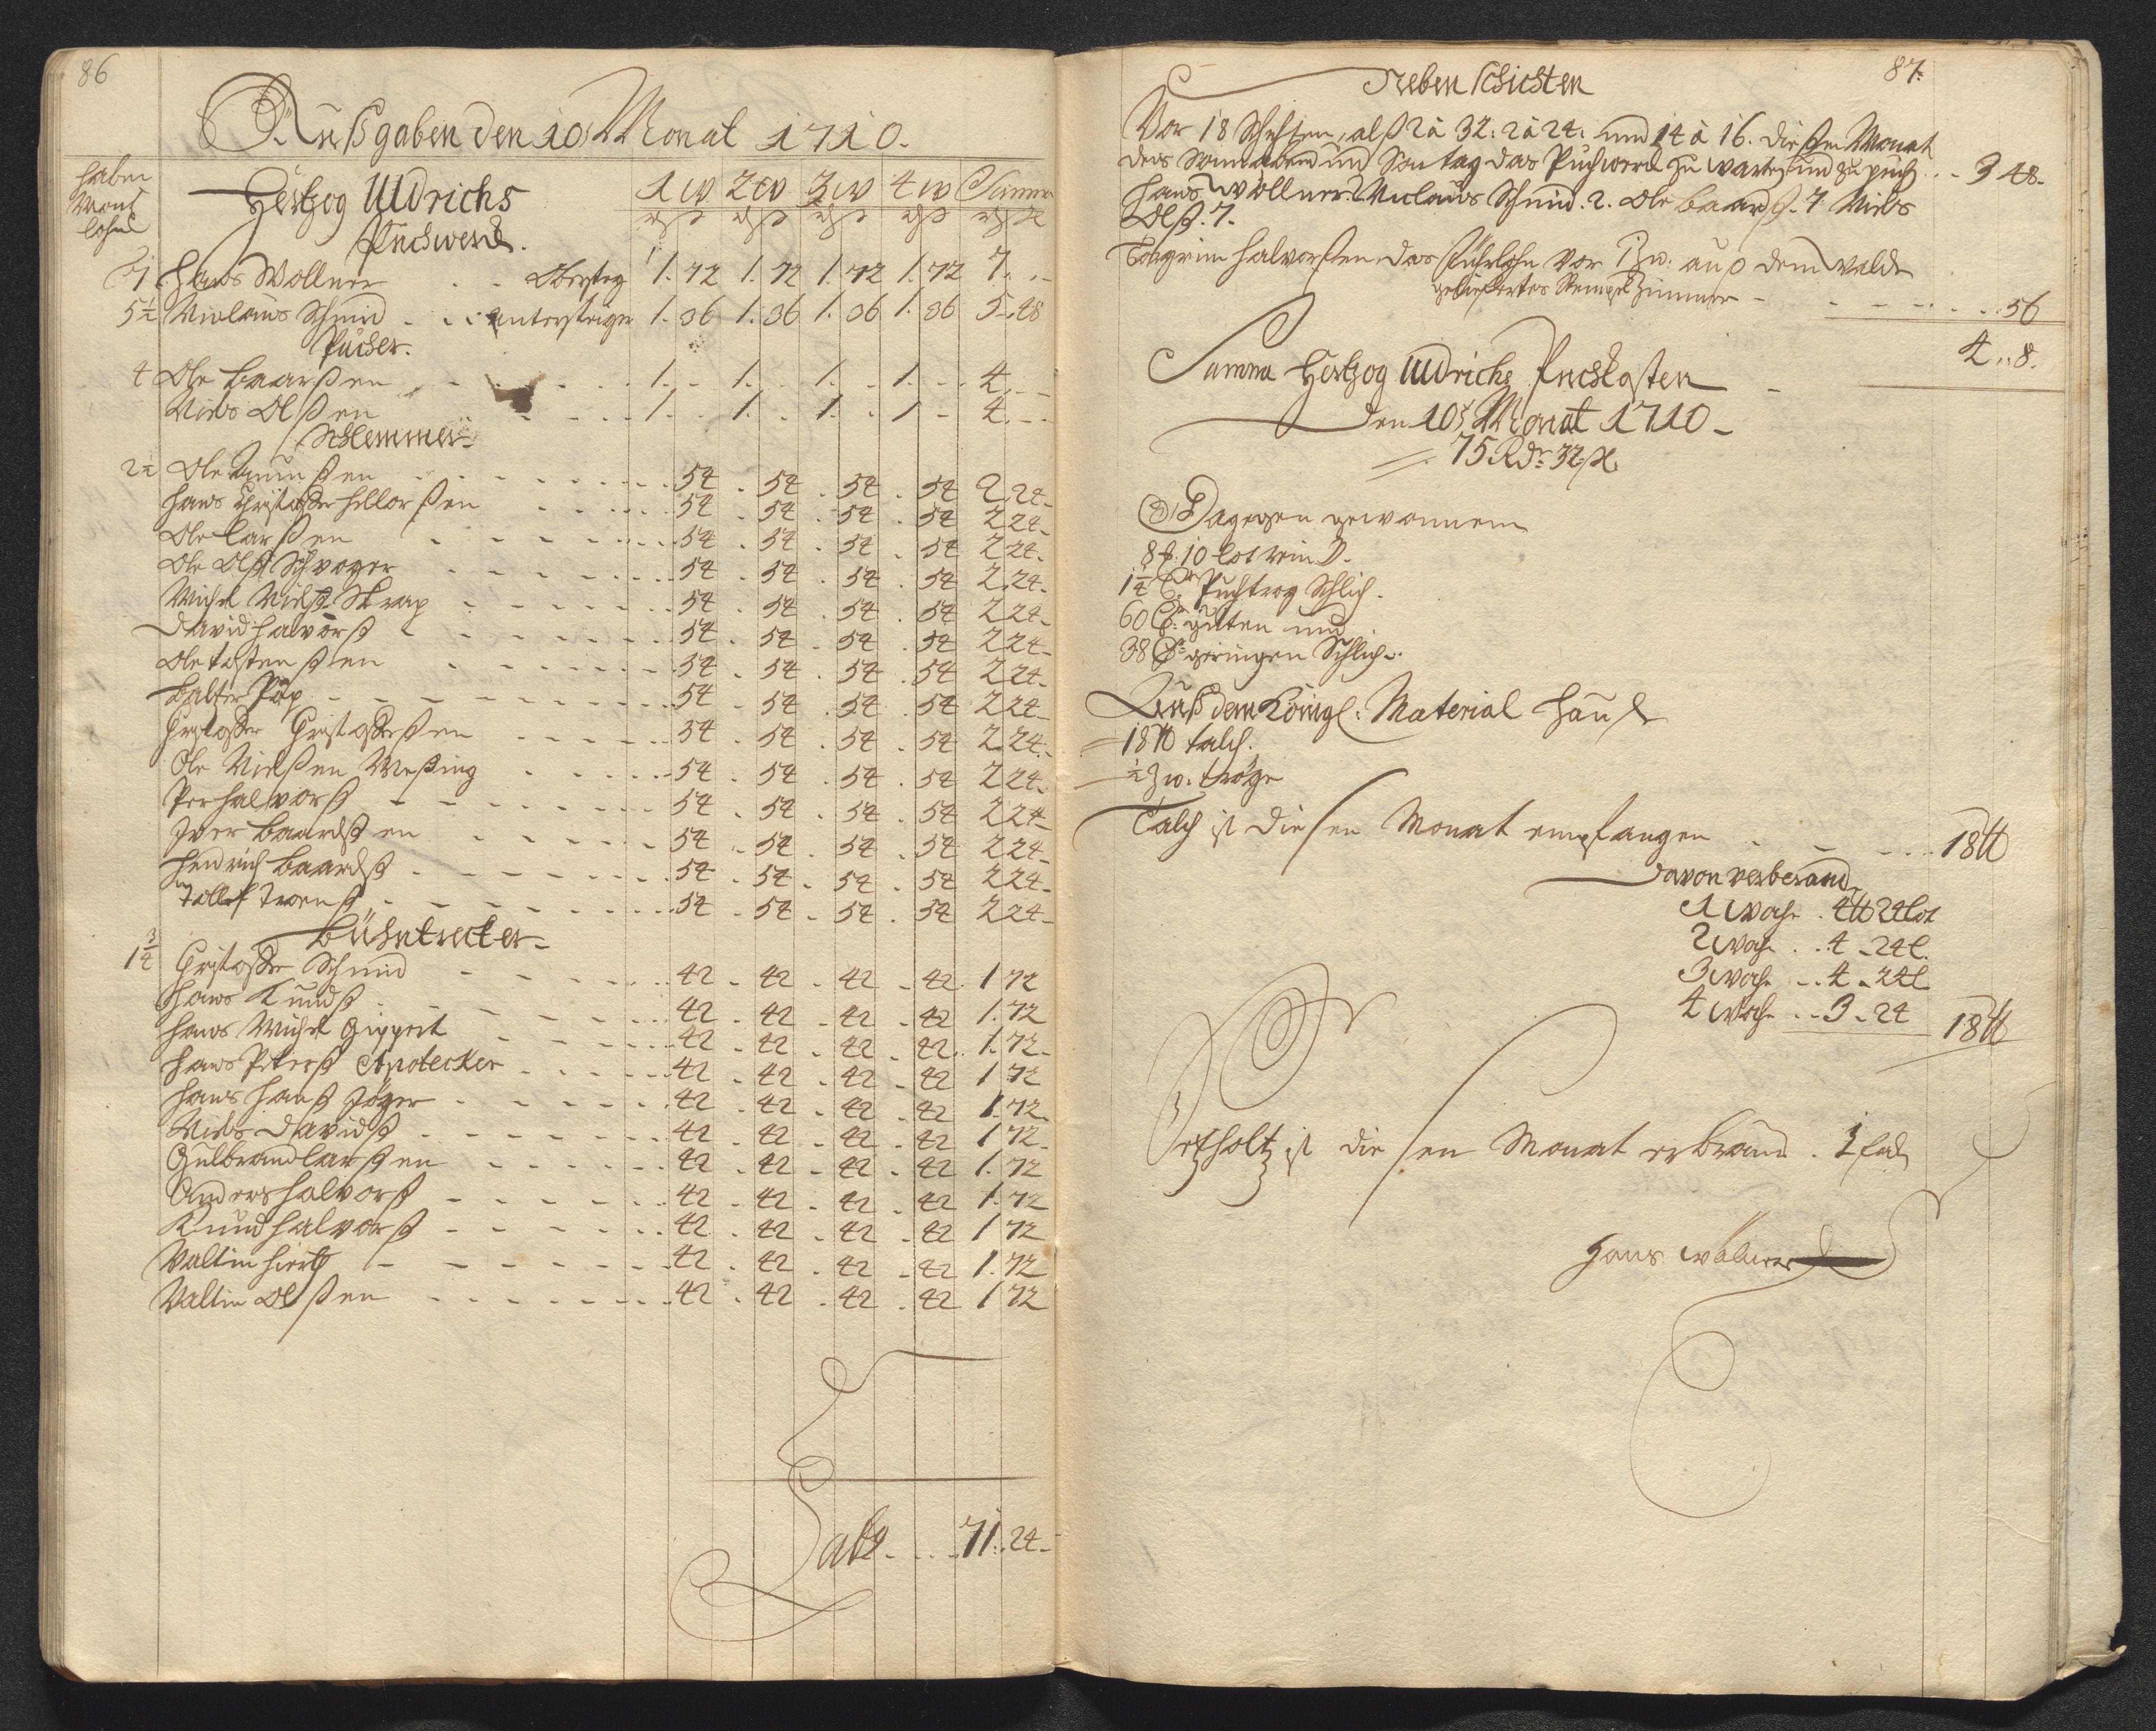 86
Außgaben den 10 Monat 1710.
haben
Mont
lohn
Hertzog Uldrichs
Puchwerck.
1 W 2 W 3 W 4 W Summa
7 Hans Wollner - - Obersteig 1. 72 1. 72 1. 72 1. 72 7. - -
5½ Niclaus Schmid - - untersteiger 1. 36 1. 36 1. 36 1. 36 5. 48
Pucher.
4 Ole baarßen - - - 1. - 1. - 1. - 1. - 4. - -
Niels Olßen - - - 1. - 1. - 1. - 1 - 4. - -
Schlemmer
2¼ Ole Amunßen - - - 54 - 54 - 54 - 54 2. 24 -
Hans Christoffer Hellorßen - - - 54 - 54 - 54 - 54 2 24 -
Ole Larßen - - - 54 - 54 - 54 - 54 2 24 -
Ole Olß Schvager - - - 54 - 54 - 54 - 54 2. 24 -
Michel Nielß Skrap - - - 54 - 54 - 54 - 54 2 24 -
David halvorß - - - 54 - 54 - 54 - 54 2 24 -
Ole tostenßen - - - 54 - 54 - 54 - 54 2 24 -
balter Pap - - - 54 - 54 - 54 - 54 2 24 -
Christoffer Christoffersen - - - 54 - 54 - 54 - 54 2. 24 -
Ole Nielßen Meßing - - - 54 - 54 - 54 - 54 2 24 -
Per halvorß - - - 54 - 54 - 54 - 54 2 24 -
Iver baardßen - - - 54 - 54 - 54 - 54 2 24 -
Hendrich baardß - - - 54 - 54 - 54 - 54 2 24 -
Tollef Troenß - - - 54 - 54 - 54 - 54 2 24 -
Bühntrecker
1¾ Christoffer Schmid - - - 42 - 42 - 42 - 42 1 72
Hans Knudß - - - 42 - 42 - 42 - 42 1. 72
Hans Michel Gippert - - - 42 - 42 - 42 - 42 1. 72 -
Hans Peterß Apotecker - - - 42 - 42 - 42 - 42 1 72
Hans Hanß Jäger - - - 42 - 42 - 42 - 42 1. 72 -
Niels Davidß - - - 42 - 42 - 42 - 42 1 72 -
Gulbrand Larßen - - - 42 - 42 - 42 - 42 1. 72
Anders halvorß - - - 42 - 42 - 42 - 42 1. 72
Knud halvorß - - - 42 - 42 - 42 - 42 1 72
Valtin Hiert - - - 42 - 42 - 42 - 42 1. 72
Valtin Olßen - - - 42 - 42 - 42 - 42 1 72
Latq - - - 71. 24 -
87.
Neben Schichten
Vor 18 Schichten, alß 2 à 32: 2 à 24: und 14 à 16. dießen Monat
des Sonnabend und Sontag das Puchwerck zu warten und zu puch - - 3 48 -
Hans Wöllner 2 Niclaus Schmid. 2. Ole baardß. 7 Niels
Olß. 7.
Torgrim halvorßen das Fuhrlohn vor 1 Zw: auß dem Walde
geliefertes Stempel Zimmer - - - 56
4. 8.
Summa Hertzog Uldrichs Puchkosten
den 10t Monat 1710 -
75 Rdr 32 ß
Dagegen gewonnen
8 10 lot rein
1¼ Puchtrog Schlich.
60 guten und
38 geringen Schlich.
Auß dem Königl: Material Hauß
18 ℔ talch.
½ Zw. tröge
Talch ist diesen Monat empfangen - - - 18 ℔
davon verbrand
1 Woche . 4 ℔ 24 lot
2 Woche . . 4 - 24 l.
3 Woche . . 4 - 24 l
4 Woche . . 3 - 24 18 ℔
Ertzholtz ist diesen Monat verbrand . 1 fad
Hans Wöllner